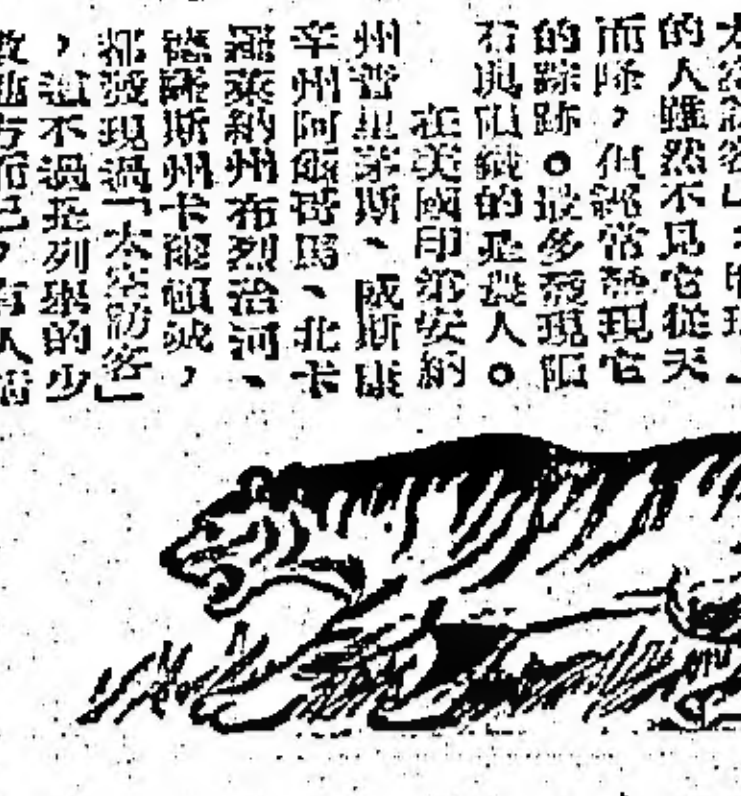 太空訪客」
的人雖然不見它從天
而降，但經常發現它
的踪跡。最多發現隕
石與隕鐵的是農人。
在美國印第安納
州普里茅斯、威斯康
辛州阿飯哥馬、北卡
羅萊納州布烈治河、
德薩斯州卡龍頓城，
都發現過「太空訪客」
，這不過是列舉的少
數地方而已，有人